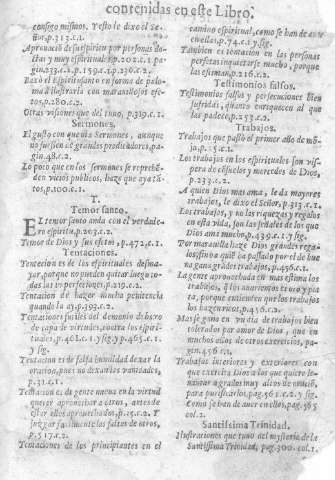 contenidas en este Libro.
consigo mismos. Y esto le dixo el Se-
ñor, p.313.c.1.
Aprovacion de su espiritu por personas doc-
tas y muy espirituales p.202.c.1. pa-
gin.233.c.1. p.159.c.1. p.230.c.2.
Baxò el Espiritu santo en forma de palo-
ma à ilustrarla con maravillosos efec-
tos, p.280.c.2.
Otras visiones que del tuvo, p.319.c.1.
Sermones.
El gusto con que oìa Sermones, aunque
no fuessen de grandes predicadores, pa-
gin.48.c.2.
Lo poco que en los sermones se reprehe-
den vicios publicos, haze que aya tã-
tos, p.100.c.1.
T.
Temor santo.
EL temor santo anda con el verdade-
ro espiritu, p.203.c.1.
Temor de Dios y sus efetos, p.472.c.1.
Tentaciones.
Tentacion es de los espirituales desma-
yar, porque no pueden quitar luego to-
das las imperfecciones, p.219.c.2.
Tentacion de hazer mucha penitencia
quando la ay, p.393.c.2.
Tentaciones sutiles del demonio debaxo
de capa de virtudes, contra los espiri-
tuales, p.462.c.1. y sig. y p.465.c.1.
y sig.
Tentacion es de falsa humildad dexar la
oracion, por no dexar los vanidades,
p.31.c.1.
Tentacion es de gente nueva en la virtud
querer aprovechar a otros, antes de
estar ellos aprovechados, p.15.c.2. Y
juzgar facilmente las faltas de otros,
p.517.c.2.
Tentaciones de los principiantes en el
camino espiritual, como se han de co-
nocellas, p.74.c.1. y sig.
Tambien es tentacion en las personas
perfetas inquietarse mucho, porque
las estiman, p.216.c.1.
Testimonios falsos.
Testimonios falsos y persecuciones bien
sufridas, quanto enriquecen al que
las padece, p.253.c.2.
Trabajos.
Trabajos que passò el primer año de mõ-
ja, p.15.c.1.
Los trabajos en los espirituales son vis-
pera de consuelos y mercedes de Dios,
p.233.c.2.
A quien Dios mas ama, le da mayores
trabajos, le dixo el Señor, p.313.c.2.
Los trabajos, y no las riquezas y regalos
en esta vida, son las señales de los que
Dios ama mucho, p.439.c.1. y sig.
Por maravilla haze Dios grandes rega-
los sino à quiẽ ha passado por el de bue-
na gana grandes trabajos, p.456.c.1.
La gente aprovechada en mas estima los
trabajos, q̃ los murientes tesoro y pla-
ta, porque entienden que los trabajos
los hazen ricos, p.436.c.1.
Mas se gana en un dia de trabajos bien
tolerados por amor de Dios, que en
muchos años de otros exercicios, pa-
gin.456.c.1.
Trabajos interiores y exteriores con
que exercita Dios à los que quiere le-
vantar à grados muy altos de union,
para purificarlos, pag.216.c.2. y sig.
Como se han de aver en ellos, pag.565
col.2.
Santissima Trinidad.
Ilustraciones que tuvo del mysterio de la
Santissima Trinidad, pag.300.col.1.